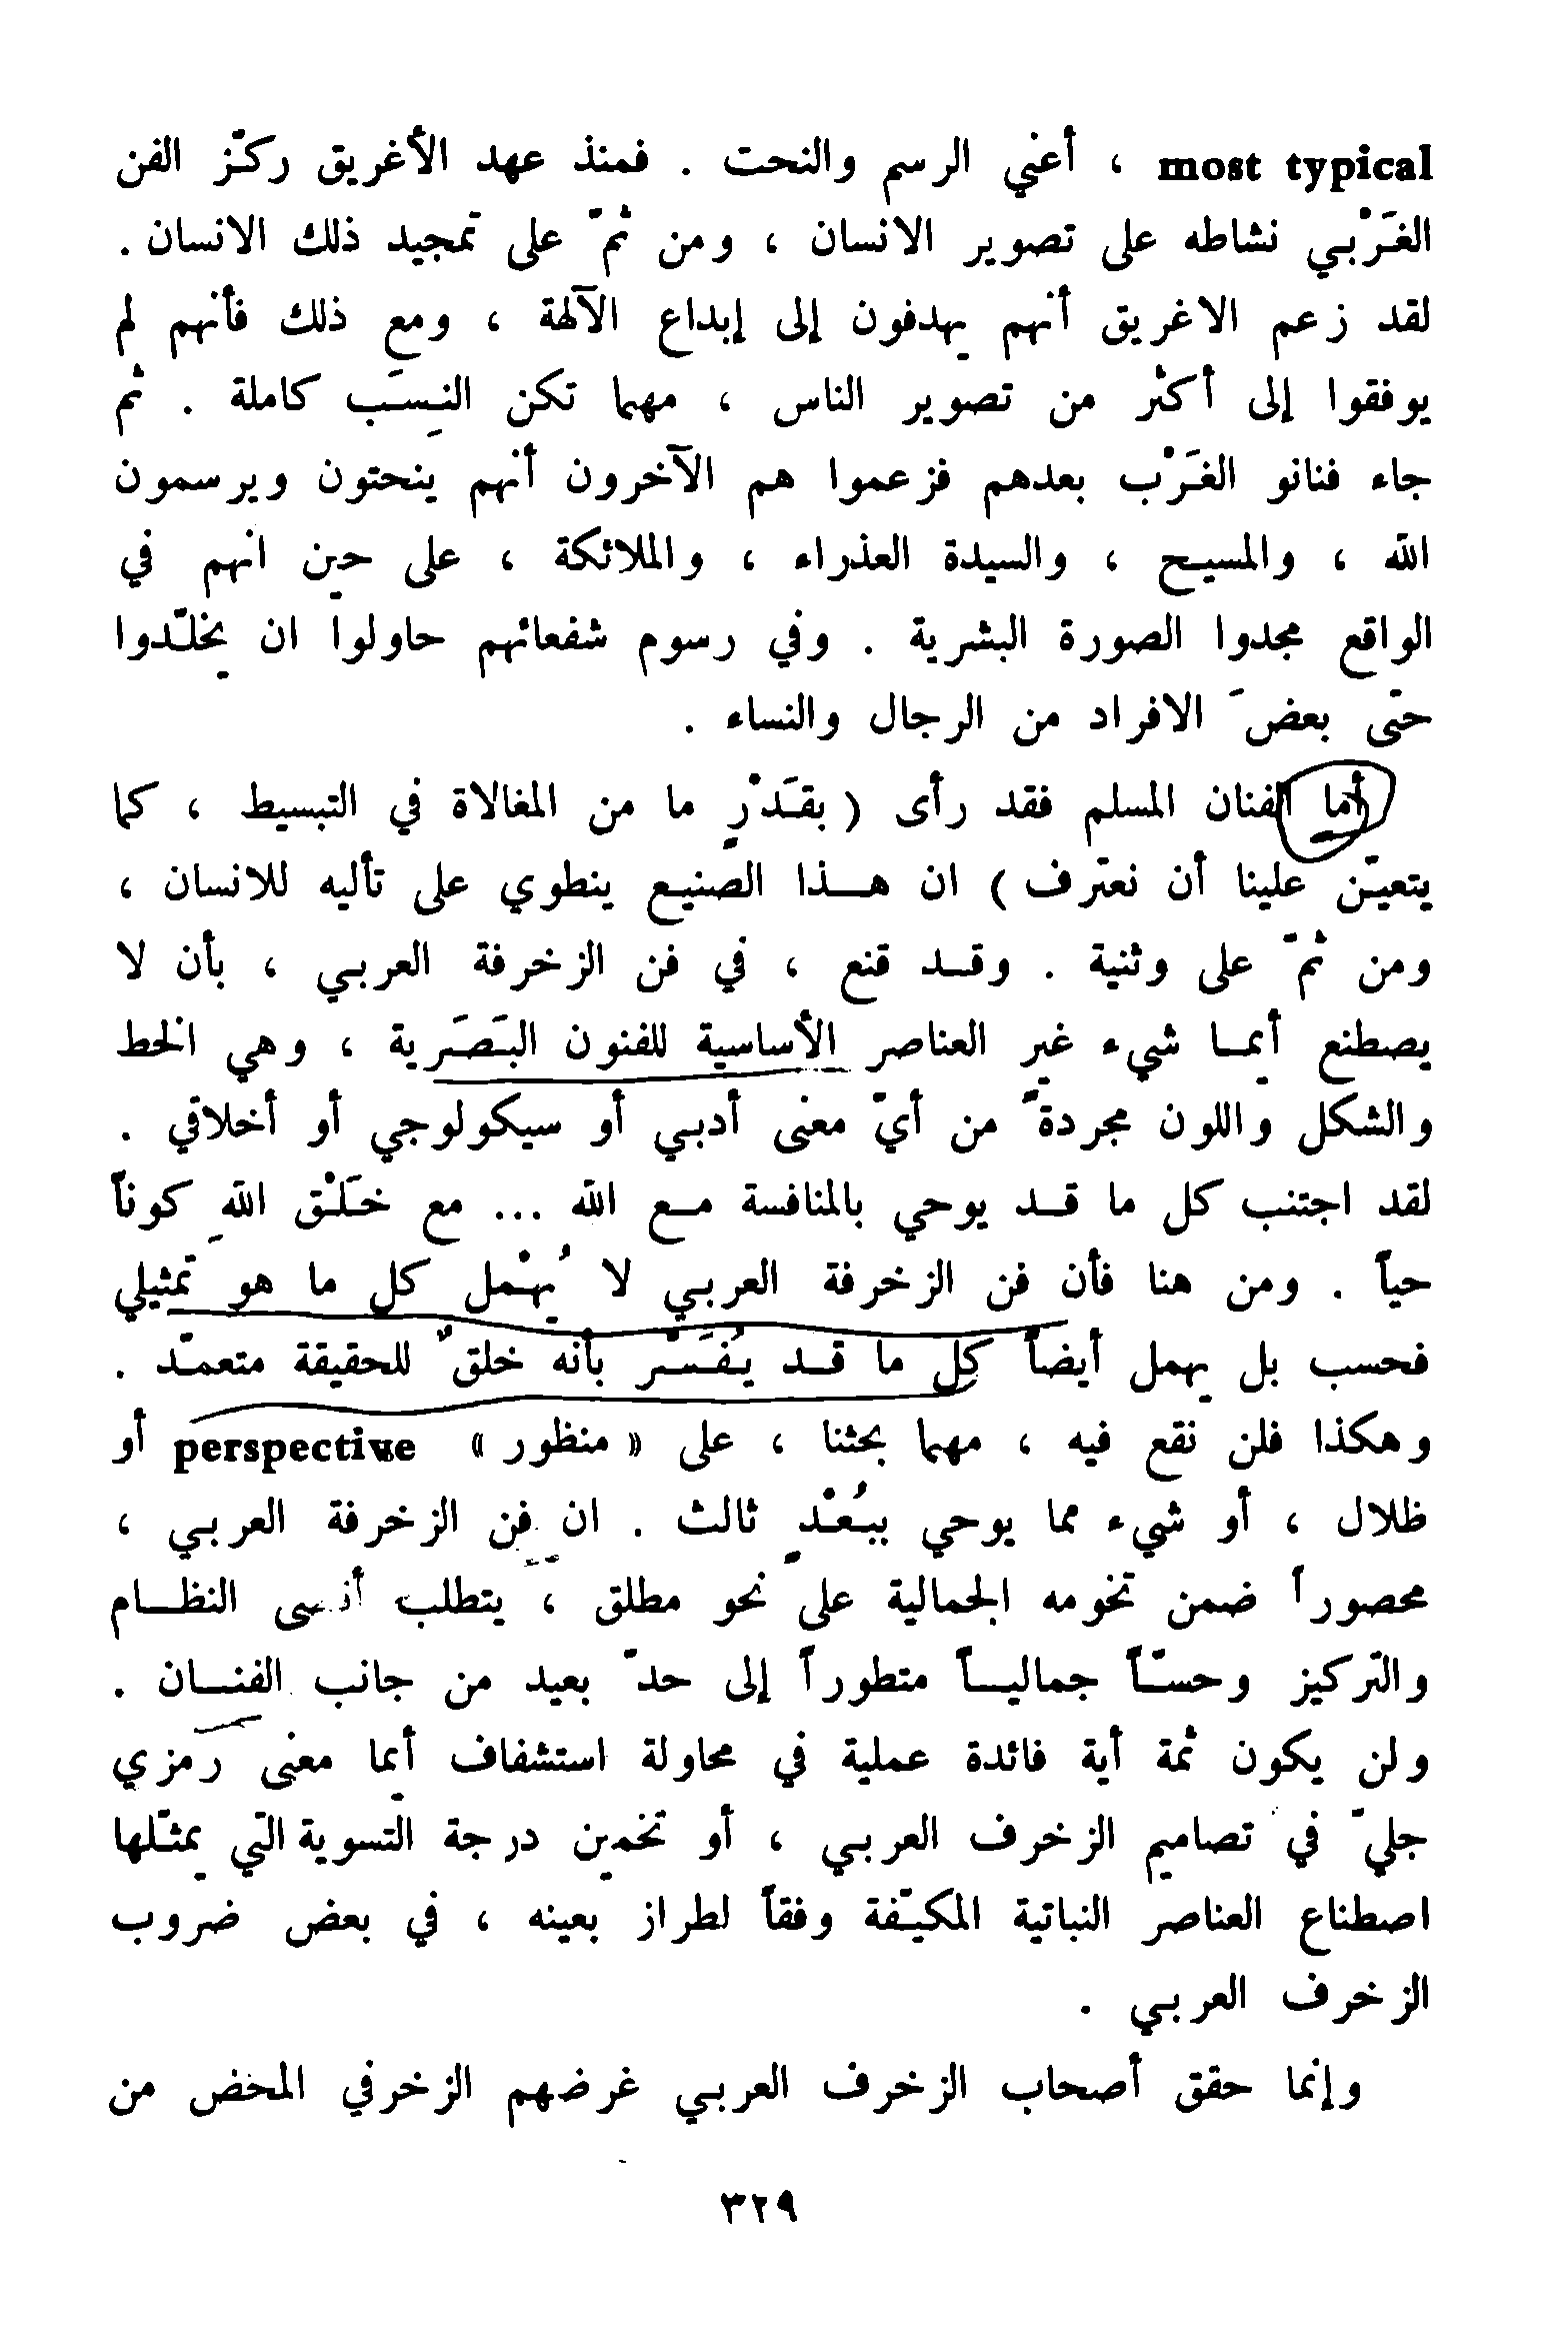 most typical ، أعني الرسم والنحت . فمنذ عهد الأغريق ركّز الفن
الغَرْبي نشاطه على تصوير الانسان ، ومن ثمّ على تمجيد ذلك الانسان .
لقد زعم الاغريق أنهم يهدفون إلى إبداع الآلهة ، ومع ذلك فأنهم لم
يوفقوا إلى أكثر من تصوير الناس ، مهما تكن النِسَب كاملة . ثم
جاء فنانو الغَرْب بعدهم فزعموا هم الآخرون أنهم ينحتون ويرسمون
الله ، والمسيح ، والسيدة العذراء ، والملائكة ، على حين انهم في
الواقع مجدوا الصورة البشرية . وفي رسوم شفعائهم حاولوا ان يخلّدوا
حتى بعضَ الافراد من الرجال والنساء .
أما الفنان المسلم فقد رأى ( بقَدْرٍ ما من المغالاة في التبسيط ، كما
يتعيّن علينا أن نعترف ) ان هذا الصنيع ينطوي على تأليه للانسان ،
ومن ثمّ على وثنية . وقد قنع ، في فن الزخرفة العربي ، بأن لا
يصطنع أيما شيء غير العناصر الأساسية للفنون البَصَرية ، وهي الخط
والشكل واللون مجردةً من أيّ معنى أدبي أو سيكولوجي أو أخلاقي .
لقد اجتنب كل ما قد يوحي بالمنافسة مع الله ... مع خَلْق اللهِ كوناً
حياً . ومن هنا فأن فن الزخرفة العربي لا يُهْمل كل ما هو تمثيلي
فحسب بل يهمل أيضاً كل ما قد يُفَسَّر بأنه خلقٌ للحقيقة متعمّد .
وهكذا فلن نقع فيه ، مهما بحثنا ، على « منظور » perspective أو
ظلال ، أو شيء مما يوحي ببُعْدٍ ثالث . ان فن الزخرفة العربي ،
محصوراً ضمن تخومه الجمالية على نحو مطلق ، يتطلب النظام
والتركيز وحسّاً جمالياً متطوراً إلى حدّ بعيد من جانب الفنان .
ولن يكون ثمة أية فائدة عملية في محاولة استشفاف أيما معنى رمزي
جليّ في تصاميم الزخرف العربي ، أو تخمين درجة التسوية التي يمثّلها
اصطناع العناصر النباتية المكيّفة وفقاً لطراز بعينه ، في بعض ضروب
الزخرف العربي .
وإنما حقق أصحاب الزخرف العربي غرضهم الزخرفي المحض من
٣٢٩